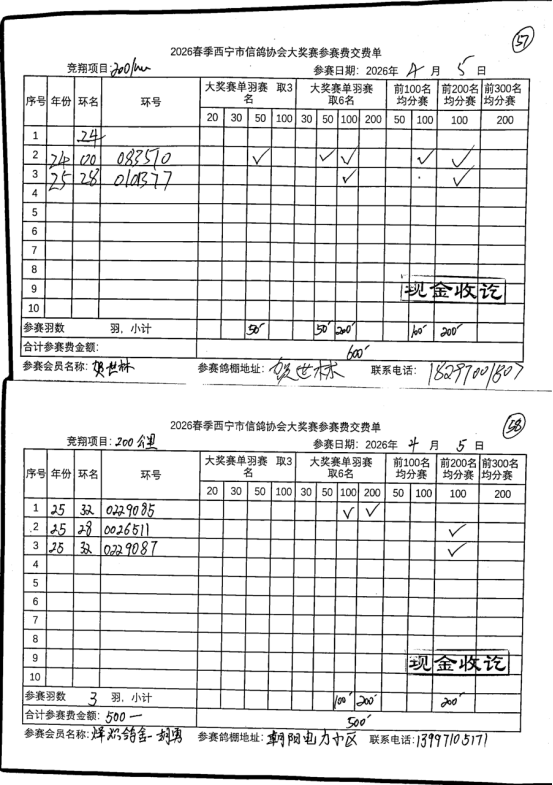 57
2026春季西宁市信鸽协会大奖赛参赛费交费单
竞翔项目:200/km 参赛日期: 2026年 4 月 5 日
序号 年份 环名 环号 大奖赛单羽赛 取3名 大奖赛单羽赛 取6名 前100名均分赛 前200名均分赛 前300名均分赛
20 30 50 100 30 50 100 200 50 100 100 200
1 24
2 24 00 083510 ✓ ✓ ✓ ✓ ✓
3 25 28 010377 ✓ ✓
4
5
6
7
8
9 现金收讫
10
参赛羽数 羽，小计 50 50 200 100 200
合计参赛费金额: 600
参赛会员名称: 贺世林 参赛鸽棚地址: 贺世林 联系电话: 18297001807
58
2026春季西宁市信鸽协会大奖赛参赛费交费单
竞翔项目: 200公里 参赛日期: 2026年 4 月 5 日
序号 年份 环名 环号 大奖赛单羽赛 取3名 大奖赛单羽赛 取6名 前100名均分赛 前200名均分赛 前300名均分赛
20 30 50 100 30 50 100 200 50 100 100 200
1 25 32 0229085 ✓ ✓
2 25 28 0026511 ✓
3 25 32 0229087 ✓
4
5
6
7
8
9 现金收讫
10
参赛羽数 3 羽，小计 100 200 200
合计参赛费金额: 500一 500
参赛会员名称: 胡勇 参赛鸽棚地址: 朝阳电力小区 联系电话: 13997105171